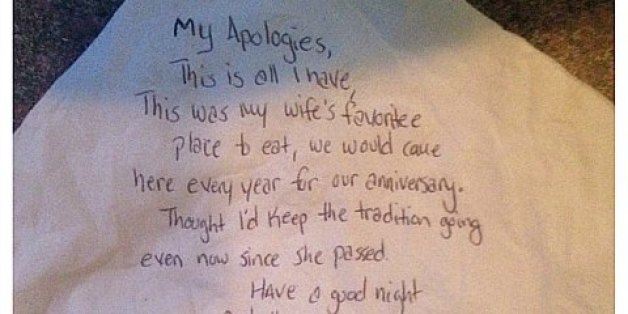 My Apologies,
This is all I have,
This was my wife's favoritee
place to eat, we would came
here every year for our anniversary.
Thought I'd keep the tradition going
even now since she passed.
Have a good night